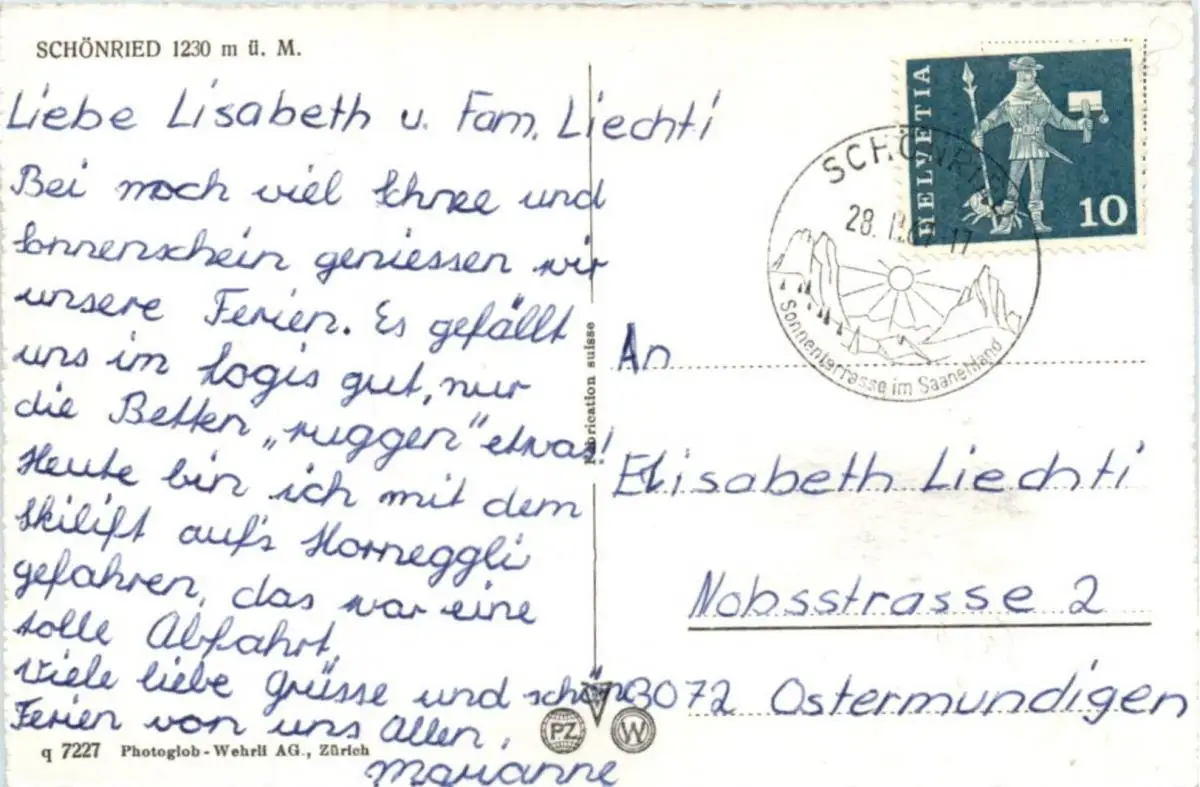 SCHÖNRIED 1230 m ü. M.
Liebe Lisabeth u. Fam. Liechti
Bei noch viel Schnee und
Sonnenschein geniessen wir
unsere Ferien. Es gefällt
uns im Logis gut, nur
die Betten „ruggen" etwas!
Heute bin ich mit dem
Skilift auf's Horneggli
gefahren, das war eine
tolle Abfahrt.
Viele liebe Grüsse und schöne
Ferien von uns Allen.
Marianne
q 7227 Photoglob-Wehrli AG., Zürich
Fabrication suisse
PZ W
HELVETIA
10
SCHÖNRIED
28.
17
Sonnenterrasse im Saanenland
An
Elisabeth Liechti
Nobsstrasse 2
3072 Ostermundigen